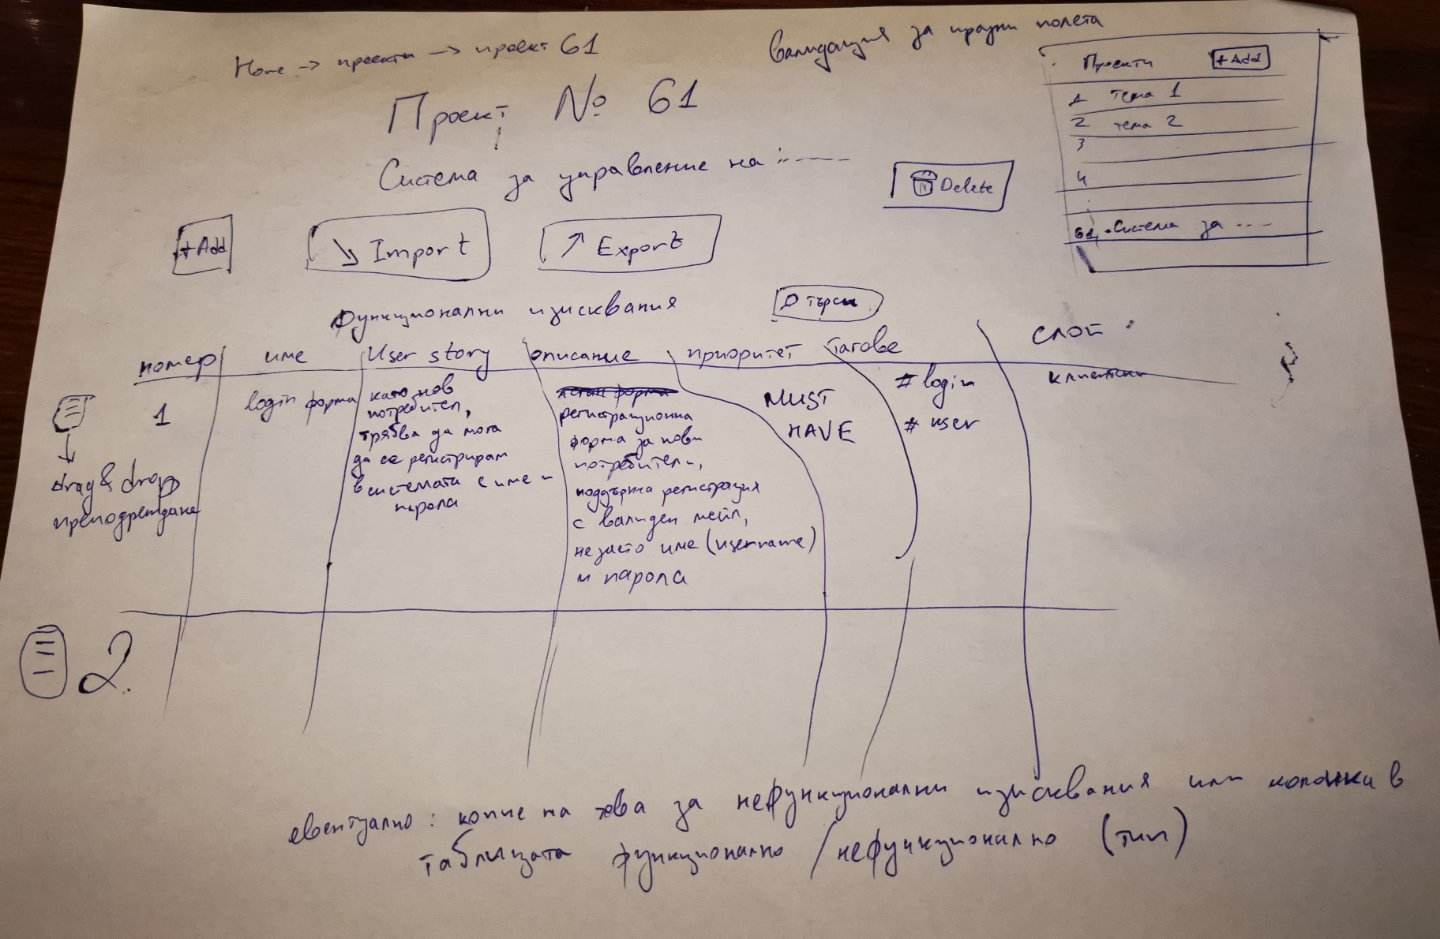 Home -> проекти -> проект 61
Валидация за празни полета
Проект № 61
Система за управление на :----
Delete
+Add
Import
Export
Проекти +Add
1 тема 1
2 тема 2
3
4
61. Система за ----
Функционални изисквания
Търси
номер име User story описание приоритет тагове слой
1
login форма
като нов
потребител,
трябва да мога
да се регистрирам
в системата с име и
парола
регистрационна
форма за нови
потребители,
поддържа регистрация
с валиден мейл,
незаето име (username)
и парола
MUST
HAVE
# login
# user
клиентски
drag & drop
преподреждане
2.
евентуално: копие на това за нефункционални изисквания или колонка в
таблицата функционално / нефункционално (тип)